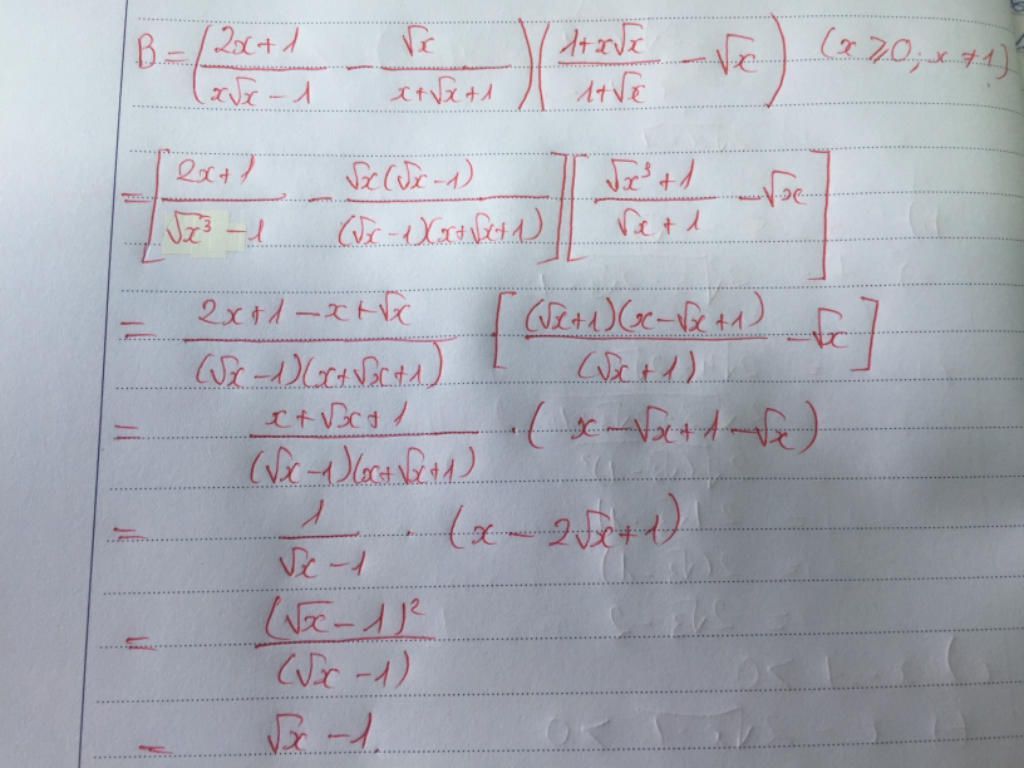 B = ( (2x+1)/(x√x − 1) − √x/(x+√x+1) ) ( (1+x√x)/(1+√x) − √x ) (x ⩾ 0; x ≠ 1)
= [ (2x+1)/(√x³ − 1) − √x(√x−1)/((√x−1)(x+√x+1)) ] [ (√x³+1)/(√x+1) − √x ]
= (2x+1−x+√x)/((√x−1)(x+√x+1)) [ (√x+1)(x−√x+1)/(√x+1) − √x ]
= (x+√x+1)/((√x−1)(x+√x+1)) . ( x−√x+1−√x )
= 1/(√x−1) . (x − 2√x+1)
= (√x−1)²/(√x−1)
= √x −1.